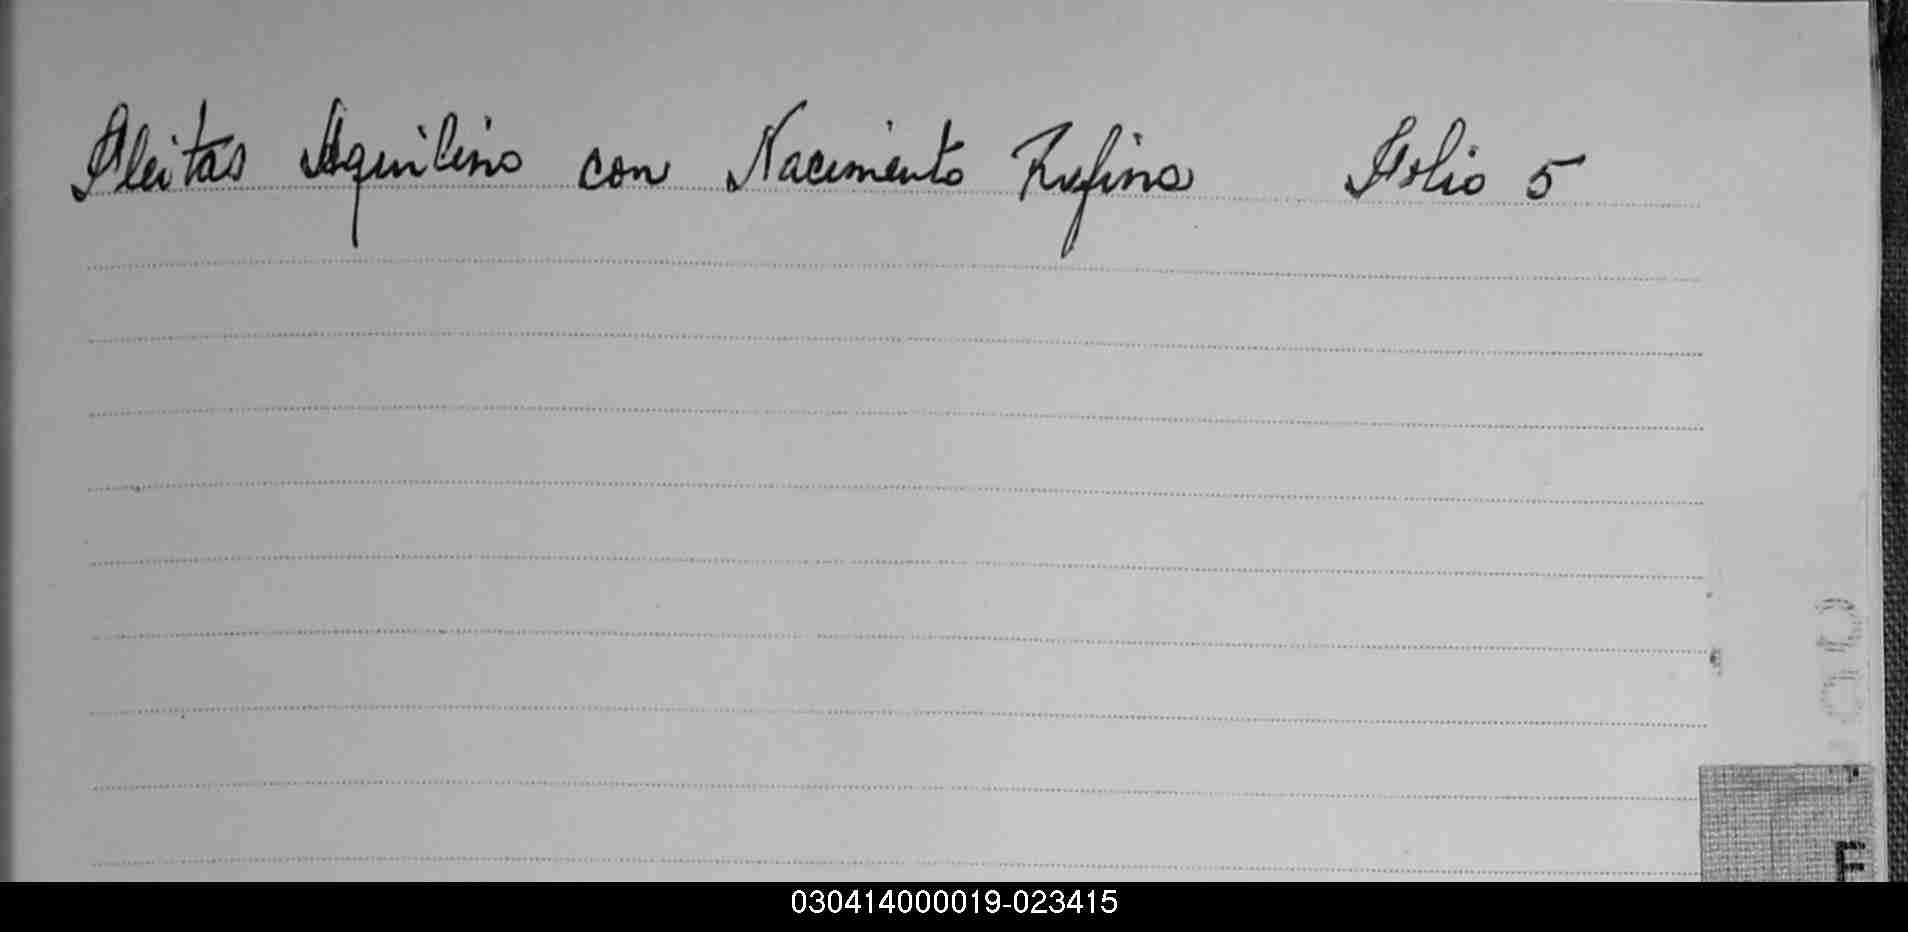 Fleitas Aquilino con Nacimento Rufina Folio 5
F
030414000019-023415